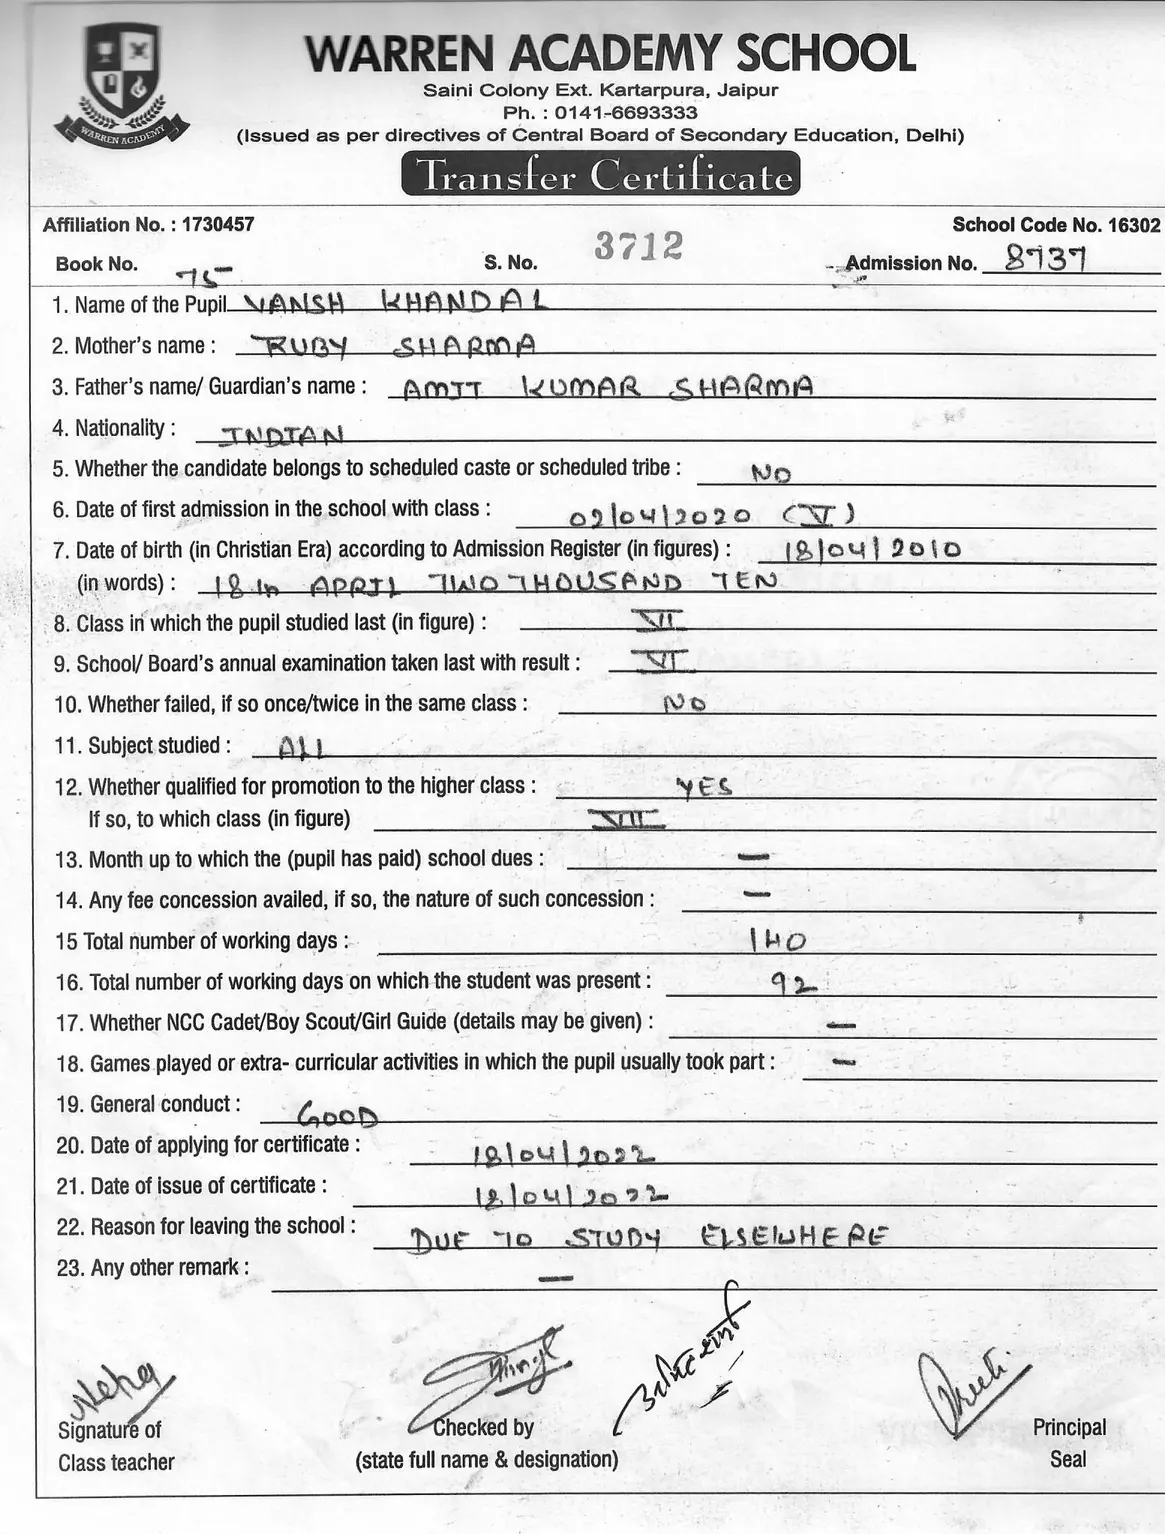 WARREN ACADEMY SCHOOL
WARREN ACADEMY
Saini Colony Ext. Kartarpura, Jaipur
Ph. : 0141-6693333
(Issued as per directives of Central Board of Secondary Education, Delhi)
Transfer Certificate
Affiliation No. : 1730457 School Code No. 16302
Book No. 75 S. No. 3712 Admission No. 8737
1. Name of the Pupil VANSH KHANDAL
2. Mother's name : RUBY SHARMA
3. Father's name/ Guardian's name : AMIT KUMAR SHARMA
4. Nationality : INDIAN
5. Whether the candidate belongs to scheduled caste or scheduled tribe : NO
6. Date of first admission in the school with class : 02/04/2020 (V)
7. Date of birth (in Christian Era) according to Admission Register (in figures) : 18/04/2010
(in words) : 18 th APRIL TWO THOUSAND TEN
8. Class in which the pupil studied last (in figure) : VII
9. School/ Board's annual examination taken last with result : VI
10. Whether failed, if so once/twice in the same class : NO
11. Subject studied : ALL
12. Whether qualified for promotion to the higher class : YES
If so, to which class (in figure) VII
13. Month up to which the (pupil has paid) school dues : —
14. Any fee concession availed, if so, the nature of such concession : —
15 Total number of working days : 140
16. Total number of working days on which the student was present : 92
17. Whether NCC Cadet/Boy Scout/Girl Guide (details may be given) : —
18. Games played or extra- curricular activities in which the pupil usually took part : —
19. General conduct : GOOD
20. Date of applying for certificate : 18/04/2022
21. Date of issue of certificate : 18/04/2022
22. Reason for leaving the school : DUE TO STUDY ELSEWHERE
23. Any other remark : —
Neha
Signature of Checked by Principal
Class teacher (state full name & designation) Seal